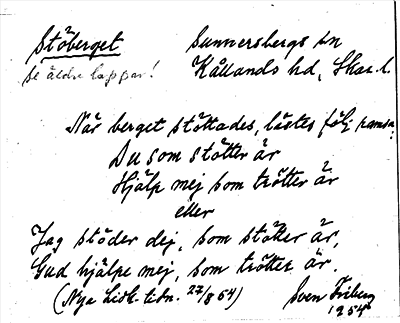 Stöberget
Sunnersbergs sn
se äldre lappar!
Kållands hd, Skar. l.
När berget stöttades, lästes följ. ramsa:
Du som stötter är
Hjälp mej som trötter är
eller
Jag stöder dej, som stötter är,
Gud hjälpe mej, som trötter är.
(Nya Lidk. tidn. 27/8 54)
Sven Friberg
1954